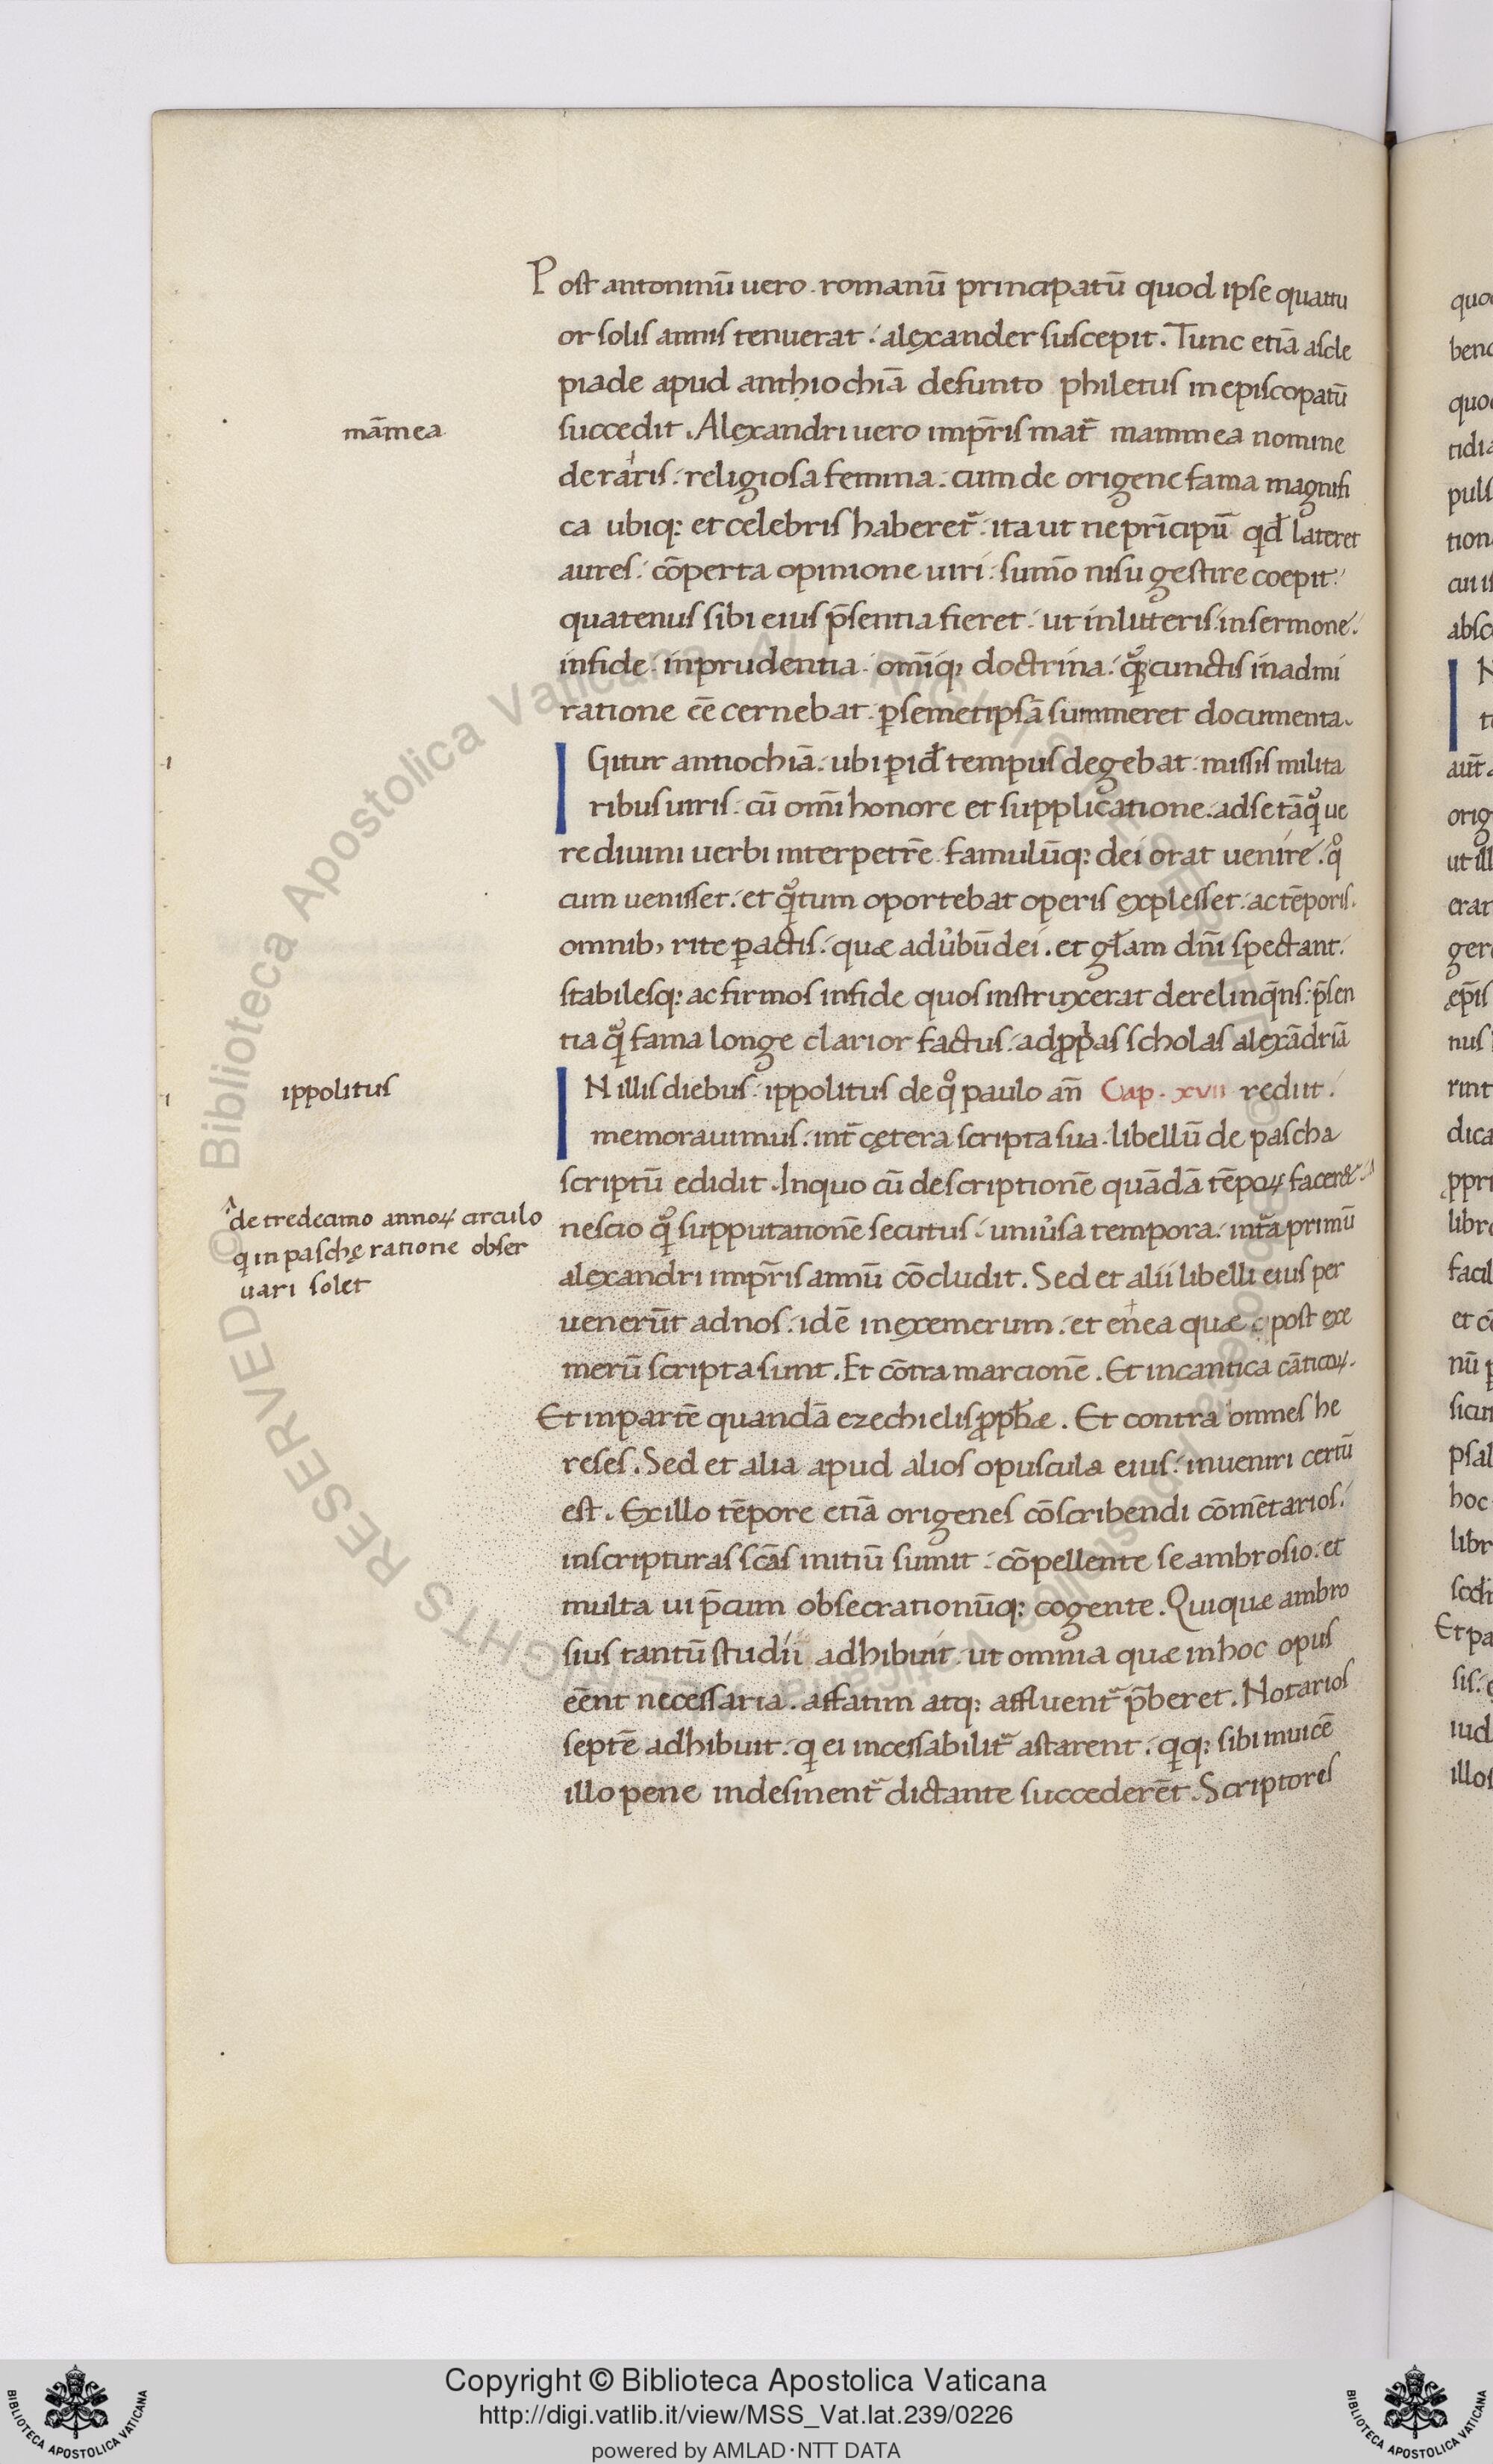 Post antoninū uero . romanū principatū quod ipse quattu
or solis annis tenuerat . alexander suscepit . Tunc etiā ascle
piade apud anthiochiā defunto philetus in episcopatū
succedit . Alexandri uero imp̄ris mat̄ mammea nomine
māmea
de raris . religiosa femina . cum de origene fama magnifi
ca ubiq; et celebris haberet̄ . ita ut ne prīcipū qd̄ lateret
aures . cōperta opinione uiri . sum̄o nisu gestire coepit .
quatenus sibi eius p̄sentia fieret . ut in litteris . in sermone .
in fide . in prudentia . om̄iq; doctrina . cunctis in admi
ratione eē cernebat . ꝑ semetipsā summeret documenta .
IGitur antiochiā . ubi ꝑ id̄ tempus degebat . missis milita
ribus uiris . cū om̄i honore et supplicatione . ad se tāqͣ̄ ue
re diuini uerbi interpetrē famulūq; dei orat uenire . qͦ
cum uenisset . et qͣ̄tum oportebat operis explesset . ac tēporis .
omnibꝫ rite ꝑactis . quæ ad u̓bū dei . et gl̄am dn̄i spectant .
stabilesq; ac firmos in fide quos instruxcerat derelinq̄ns . p̄sen
tia qͣ̄ fama longe clarior factus . ad ꝓpͥas scholas alexādriā
IN illis diebus . ippolitus de qͦ paulo an̄ Cap . xvii rediit .
ippolitus
memorauimus . int̄ cętera scripta sua . libellū de pascha
scriptū edidit . In quo cū descriptionē quādā tēpoꝝ facer&
^de tredecimo annoꝝ circulo
qͥ in paschę ratione obser
uari solet
nescio supputationē secutus . uniu̓sa tempora . intͣa primū
alexandri imp̄ris annū cōcludit . Sed et alii libelli eius per
uenerūt ad nos . idē in exemerum . et enea quæ post exe
merū scripta sunt . Et cōtra marcionē . Et in cantica cāticoꝝ .
Et in partē quandā ezechielis ꝓph̄æ . Et contra omnes he
reses . Sed et alia apud alios opuscula eius . inueniri certū
est . Ex illo tēpore etiā origenes cōscribendi cōmētarios .
in scripturas scās initiū sumit . cōpellente se ambrosio . et
multa ui p̄cum obsecrationūq; cogente . Quiquæ ambro
sius tantū studii adhibuit . ut omnia quæ in hoc opus
eēnt necessaria . affatim atq; affluent̄ p̄beret . Notarios
septē adhibuit . qͥ ei incessabilit̄ astarent . qͥq; sibi inuicē
illo pene indesinent̄ dictante succederēt . Scriptores
© Biblioteca Apostolica Vaticana ALL RIGHTS RESERVED
© Biblioteca Apostolica Vaticana ALL RIGHTS RESERVED
BIBLIOTECA APOSTOLICA VATICANA
Copyright © Biblioteca Apostolica Vaticana
http://digi.vatlib.it/view/MSS_Vat.lat.239/0226
powered by AMLAD·NTT DATA
BIBLIOTECA APOSTOLICA VATICANA